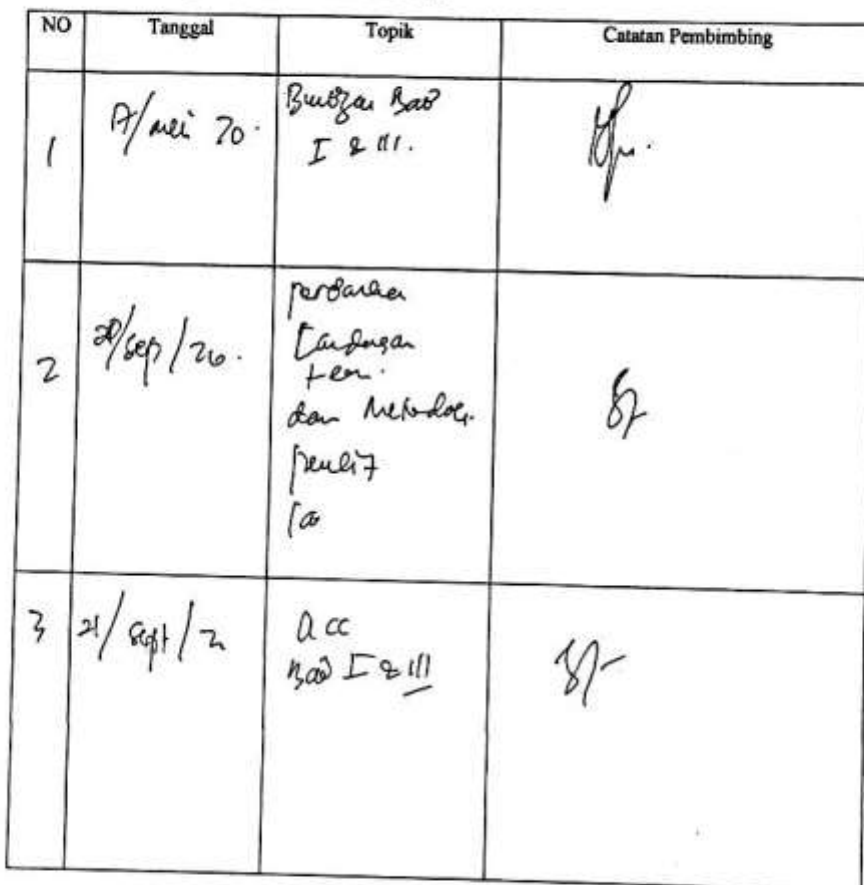 NO Tanggal Topik Catatan Pembimbing
1 17/mei 20. Bimbingan Bab
I & III.
2 20/sep/20. perbaikan
Landasan
teori.
dan Metodolo.
penelit
3 21/sept/20 acc
Bab I & III